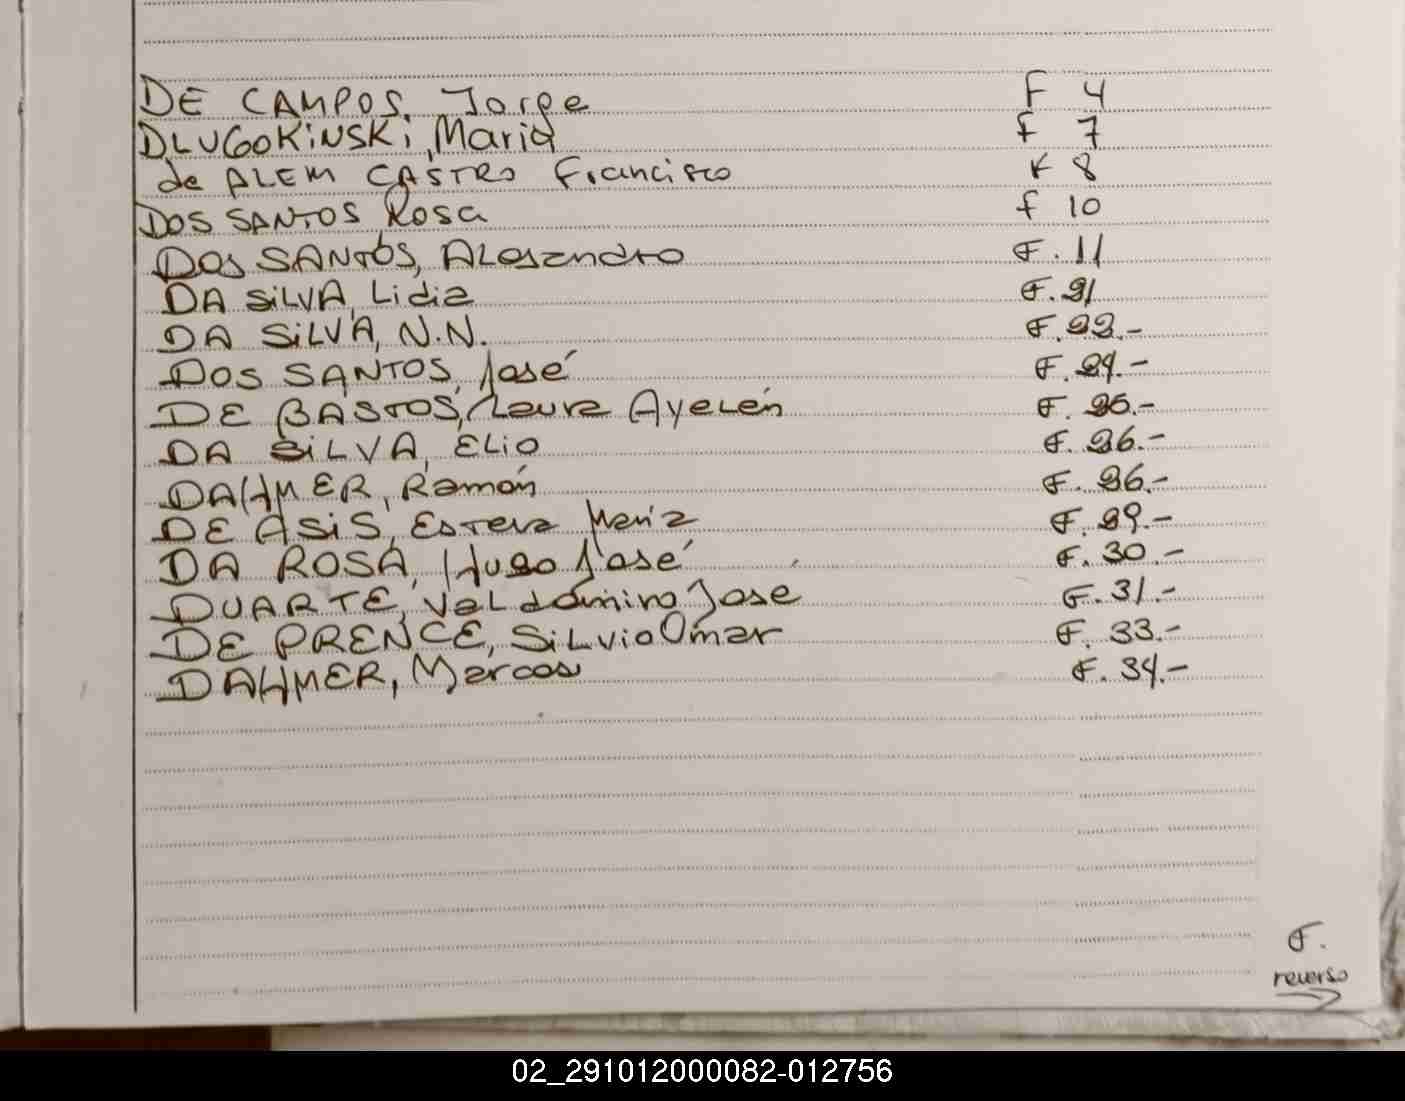 DE CAMPOS, Jorge F 4
DLUGOKiNSKi, Maria f 7
de ALEM CASTRO Francisco F 8
DOS SANTOS Rosa f 10
DOS SANTOS, ALesandro F. 11
DA SiLVA, Lidia F. 21
DA SiLVA, N.N. F. 22.-
DOS SANTOS, José F. 24.-
DE BASTOS, Laura AyeLén F. 25.-
DA SiLVA, ELio F. 26.-
DAHMER, Ramón F. 26.-
DE ASiS, Estela María F. 29.-
DA ROSA, Hugo José F. 30.-
DUARTE, VaLdomiro Jose F. 31.-
DE PRENCE, SiLvio Omar F. 33.-
DAHMER, Marcos F. 34.-
F.
reverso
02_291012000082-012756